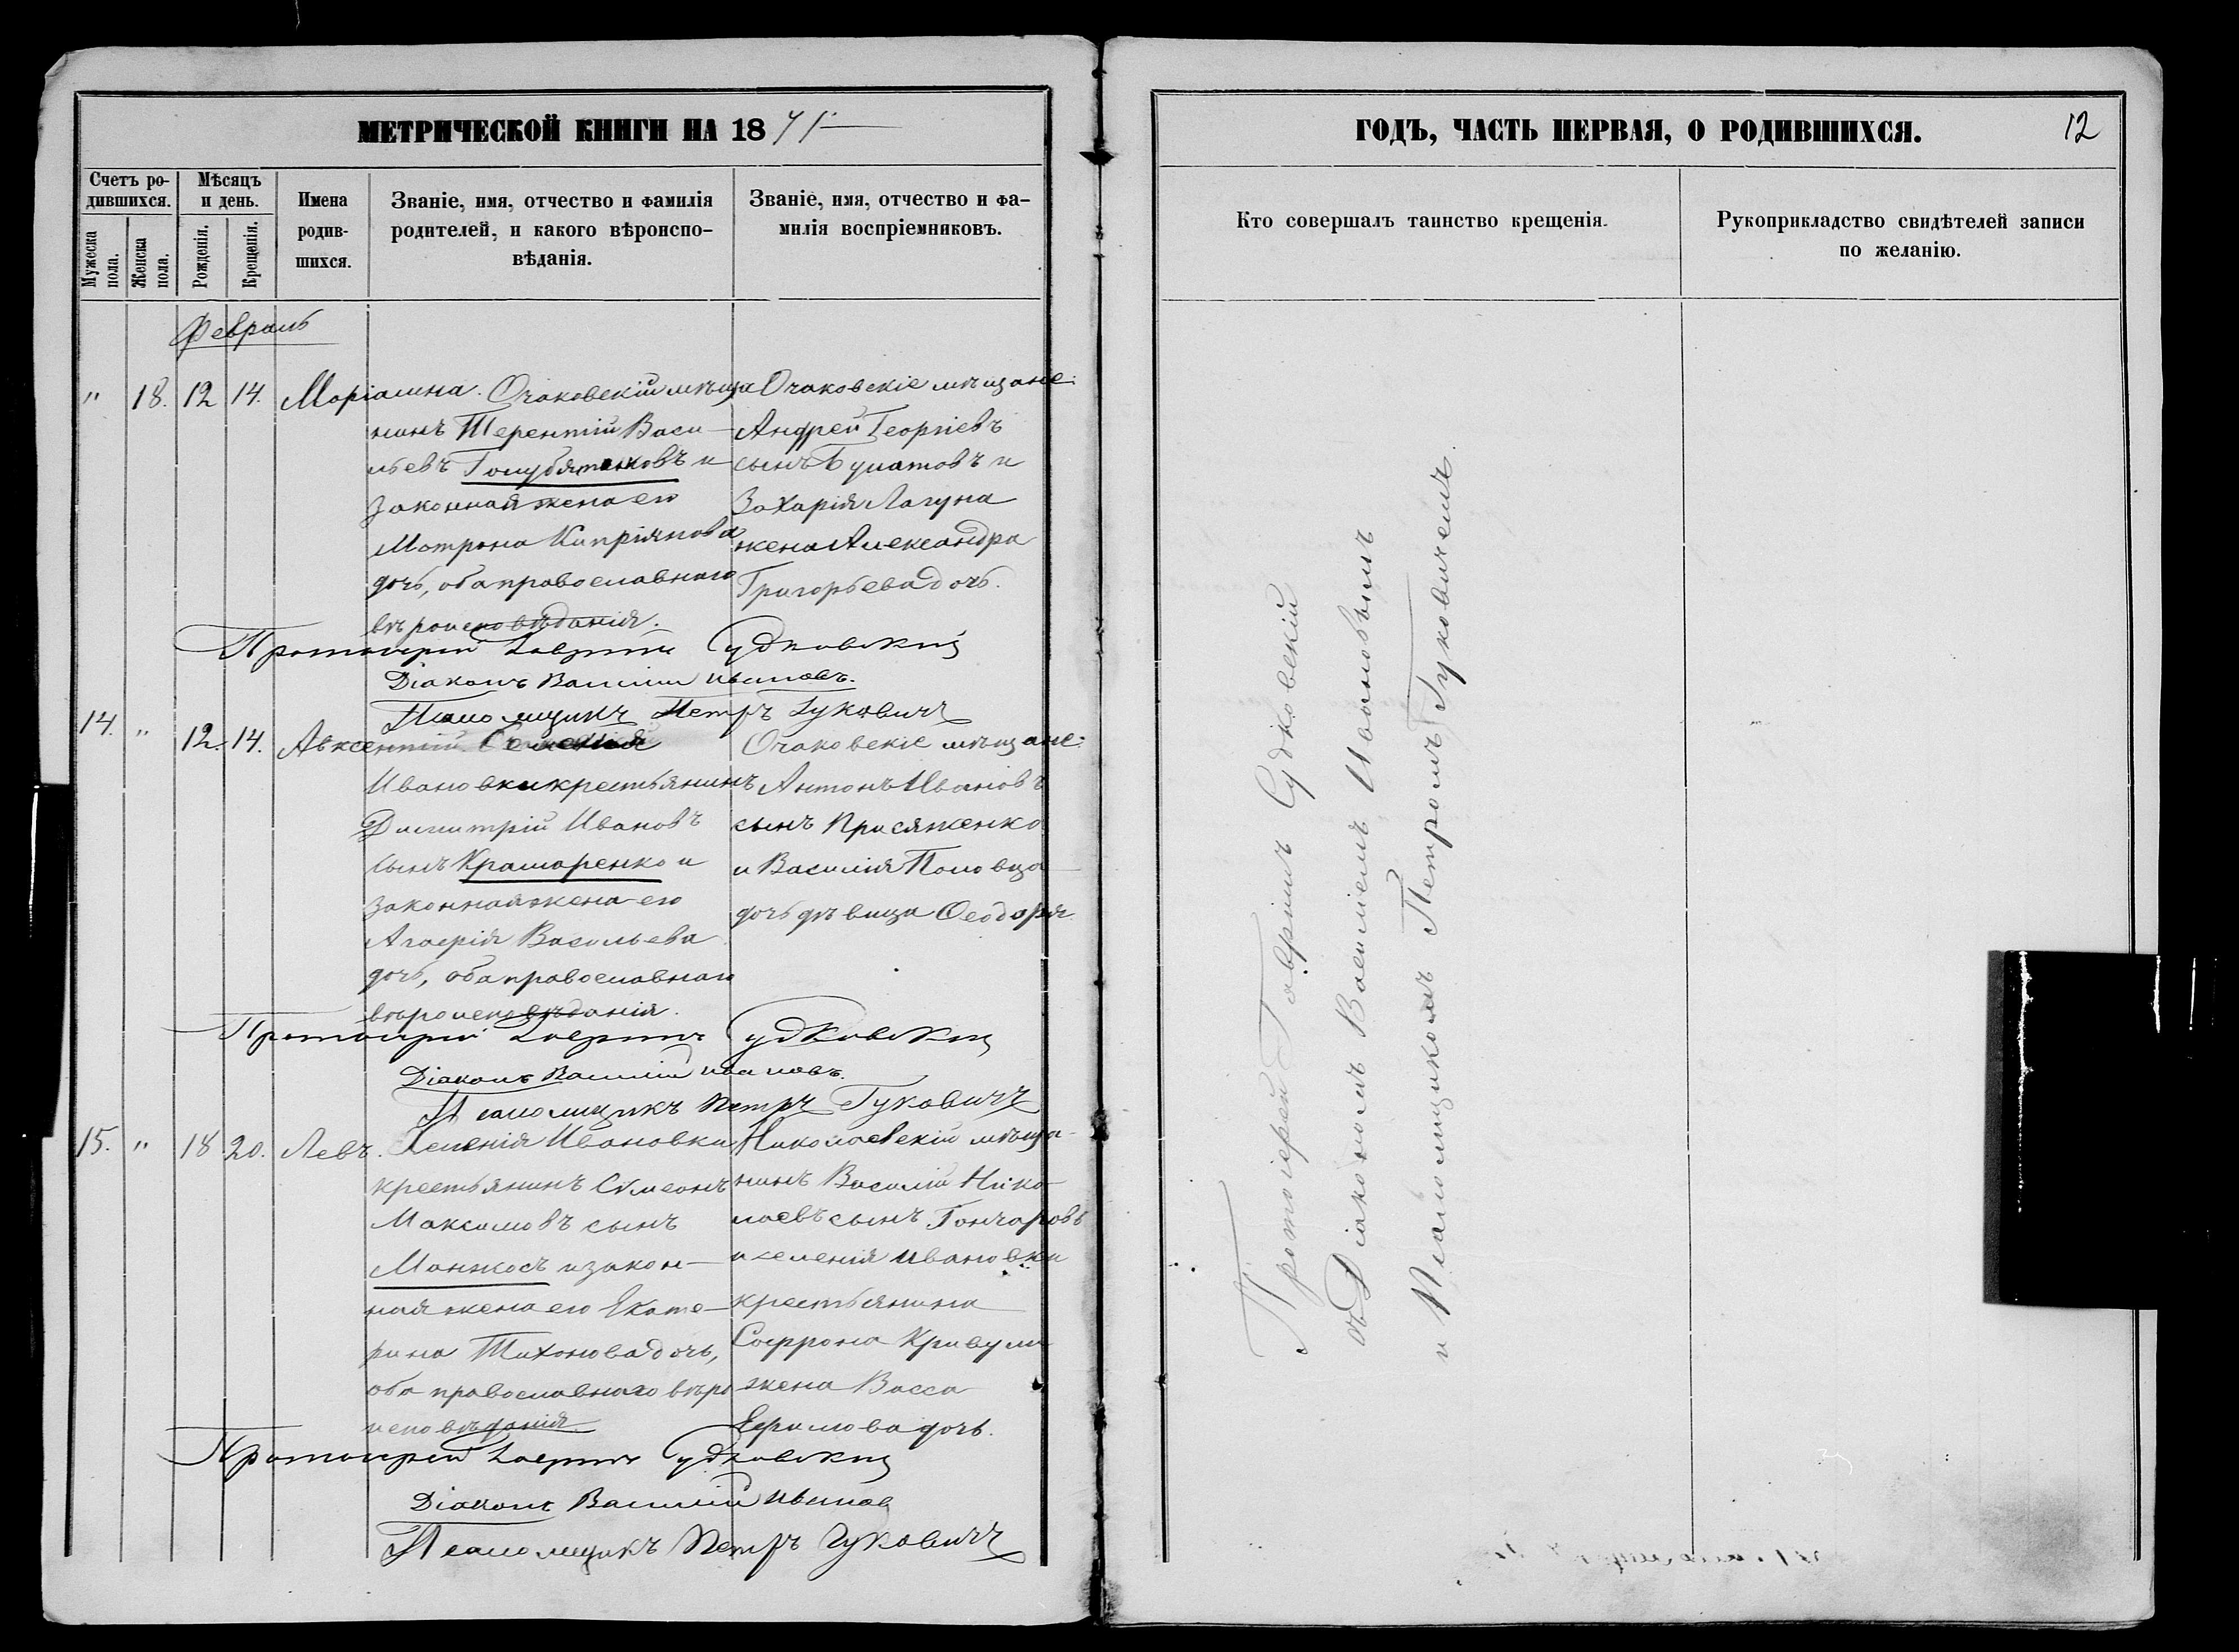 МЕТРИЧЕСКОЙ КНИГИ НА 1871
Счетъ ро-
дившихся.
Мужеска пола.
Женска пола.
Мѣсяцъ
и день.
Рожденія.
Крещенія.
Имена
родив-
шихся.
Званіе, имя, отчество и фамилія
родителей, и какого вѣроиспо-
вѣданія.
Званіе, имя, отчество и фа-
милія воспріемниковъ.
Февраль
" 18. 12 14. Маріамна. Очаковскій мѣща
нинъ Терентій Васи-
льевъ Голубятниковъ и
законная жена его
Матрона Кипріянова
дочь, оба православнаго
вѣроисповѣданія.
Очаковскіе мѣщане:
Андрей Георгіевъ
сынъ Булатовъ и
Захарія Лагуна
жена Александра
Григорьева дочь.
Протоіерей Гавріилъ Судковскій
Діаконъ Василій Ивановъ.
Псаломщикъ Петръ Гуковичъ
14. " 12. 14. Авксентій Селенія
Ивановки крестьянинъ
Димитрій Ивановъ
сынъ Крамаренко и
законная жена его
Агафія Васильева
дочь, оба православнаго
вѣроисповѣданія.
Очаковскіе мѣщане:
Антонъ Ивановъ
сынъ Присяженко
и Василія Половца
дочь дѣвица Ѳеодора
Протоіерей Гавріилъ Судковскій
Діаконъ Василій Ивановъ.
Псаломщикъ Петръ Гуковичъ
15. " 18 20. Левъ. Селенія Ивановки
крестьянинъ Сѵмеонъ
Максимовъ сынъ
Манжосъ и закон-
ная жена его Екате-
рина Тихонова дочь,
оба православнаго вѣро
исповѣданія
Николаевскій мѣща-
нинъ Василій Нико-
лаевъ сынъ Гончаровъ
и селенія Ивановки
крестьянина
Софрона Кривули
жена Васса
Ефимова дочь.
Протоіерей Гавріилъ Судковскій
Діаконъ Василій Ивановъ
Псаломщикъ Петръ Гуковичъ
ГОДЪ, ЧАСТЬ ПЕРВАЯ, О РОДИВШИХСЯ.
12
Кто совершалъ таинство крещенія.
Рукоприкладство свидѣтелей записи
по желанію.
Протоіерей Гавріилъ Судковскій
съ Діакономъ Василіемъ Ивановымъ
и Псаломщикомъ Петромъ Гуковичемъ.